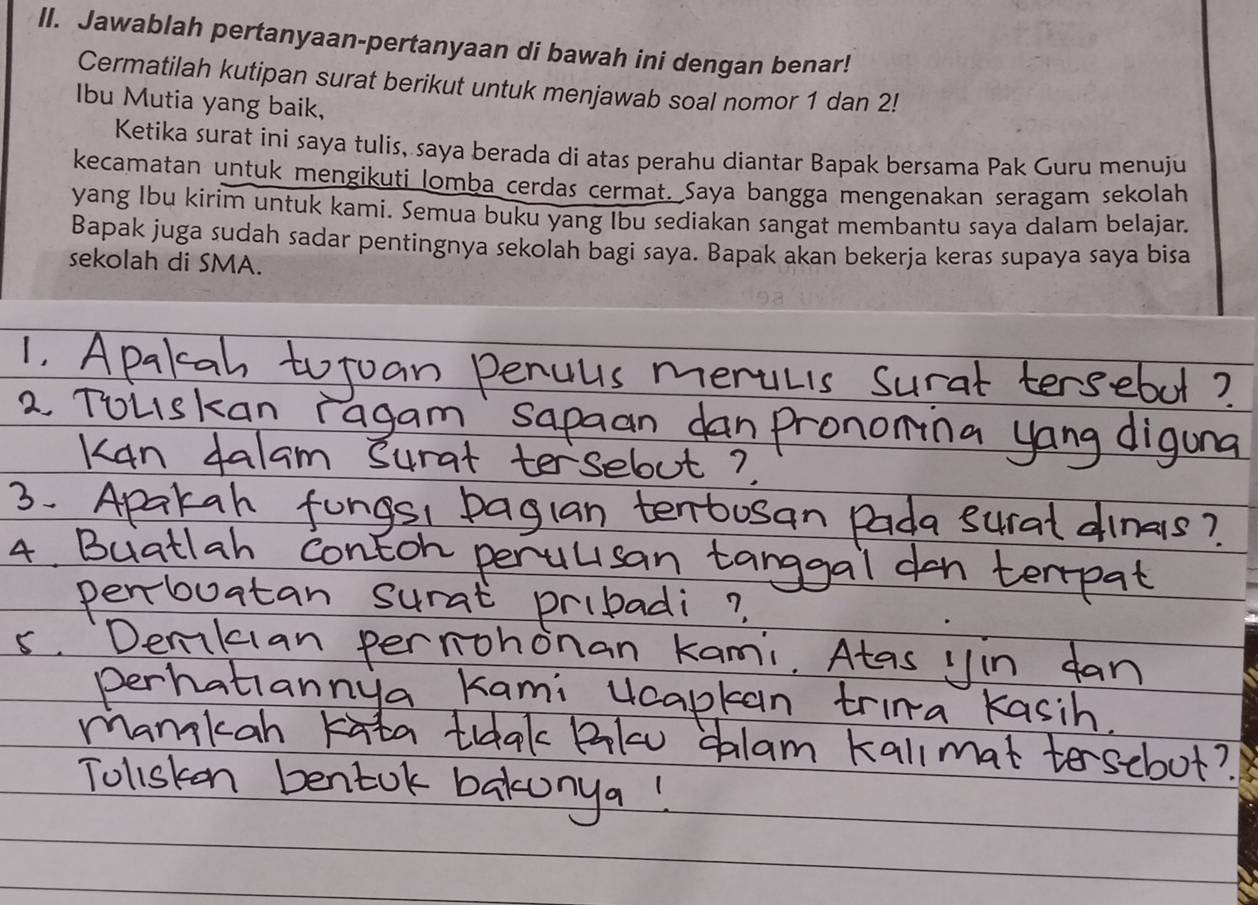 II. Jawablah pertanyaan-pertanyaan di bawah ini dengan benar!
Cermatilah kutipan surat berikut untuk menjawab soal nomor 1 dan 2!
Ibu Mutia yang baik,
Ketika surat ini saya tulis, saya berada di atas perahu diantar Bapak bersama Pak Guru menuju
kecamatan untuk mengikuti lomba cerdas cermat. Saya bangga mengenakan seragam sekolah
yang Ibu kirim untuk kami. Semua buku yang Ibu sediakan sangat membantu saya dalam belajar.
Bapak juga sudah sadar pentingnya sekolah bagi saya. Bapak akan bekerja keras supaya saya bisa
sekolah di SMA.
1. Apakah tujuan penulis menulis surat tersebut?
2. Tuliskan ragam sapaan dan pronomina yang diguna
kan dalam surat tersebut?
3. Apakah fungsi bagian tembusan pada surat dinas?
4. Buatlah contoh penulisan tanggal dan tempat
pembuatan surat pribadi?
5. Demikian permohonan kami. Atas ijin dan
perhatiannya kami ucapkan trima kasih.
manakah kata tidak baku dalam kalimat tersebut?
Tuliskan bentuk bakunya!